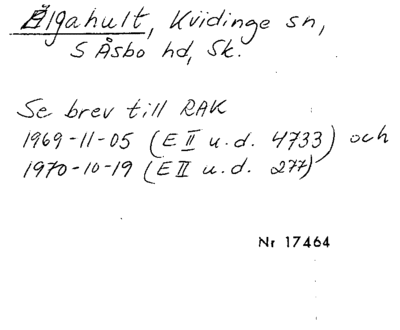 Älgahult, Kviidinge sn,
S Åsbo hd, Sk.
Se brev till RAK
1969-11-05 (E II u.d. 4733) och
1970-10-19 (E II u.d. 277)
Nr 17464